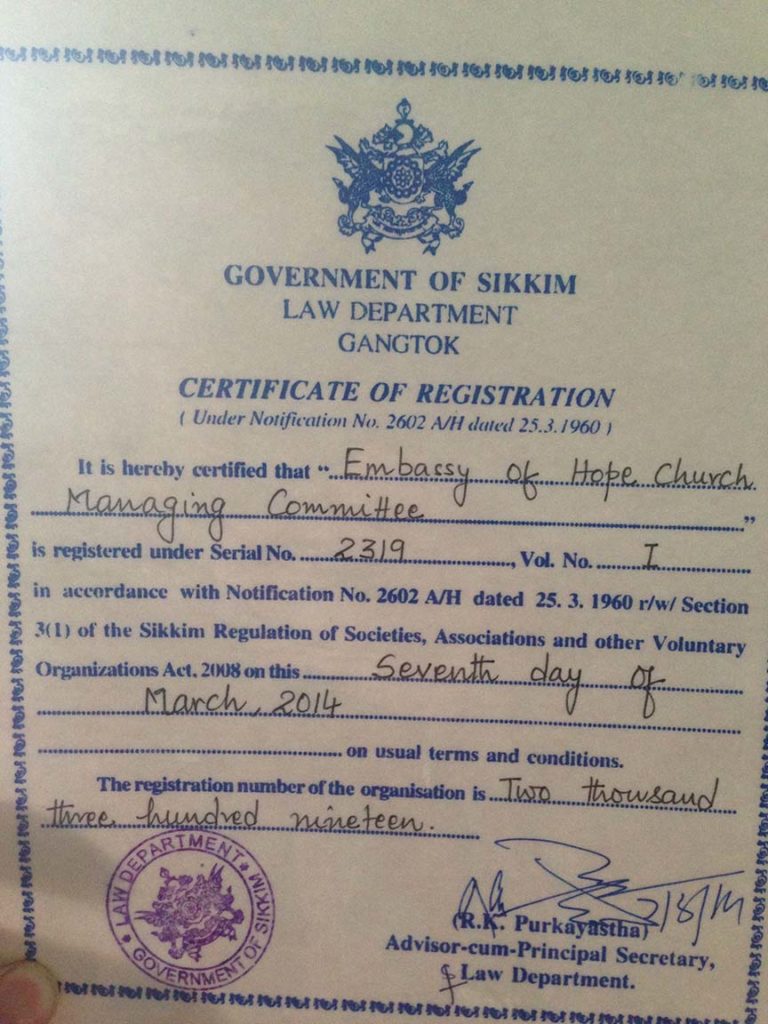 GOVERNMENT OF SIKKIM
LAW DEPARTMENT
GANGTOK
CERTIFICATE OF REGISTRATION
( Under Notification No. 2602 A/H dated 25.3.1960 )
It is hereby certified that “ Embassy of Hope Church
Managing Committee ”
is registered under Serial No. 2319, Vol. No. I
in accordance with Notification No. 2602 A/H dated 25. 3. 1960 r/w/ Section
3(1) of the Sikkim Regulation of Societies, Associations and other Voluntary
Organizations Act, 2008 on this Seventh day of
March, 2014
on usual terms and conditions.
The registration number of the organisation is Two thousand
three hundred nineteen.
LAW DEPARTMENT
GOVERNMENT OF SIKKIM
(R.K. Purkayastha)
Advisor-cum-Principal Secretary,
Law Department.